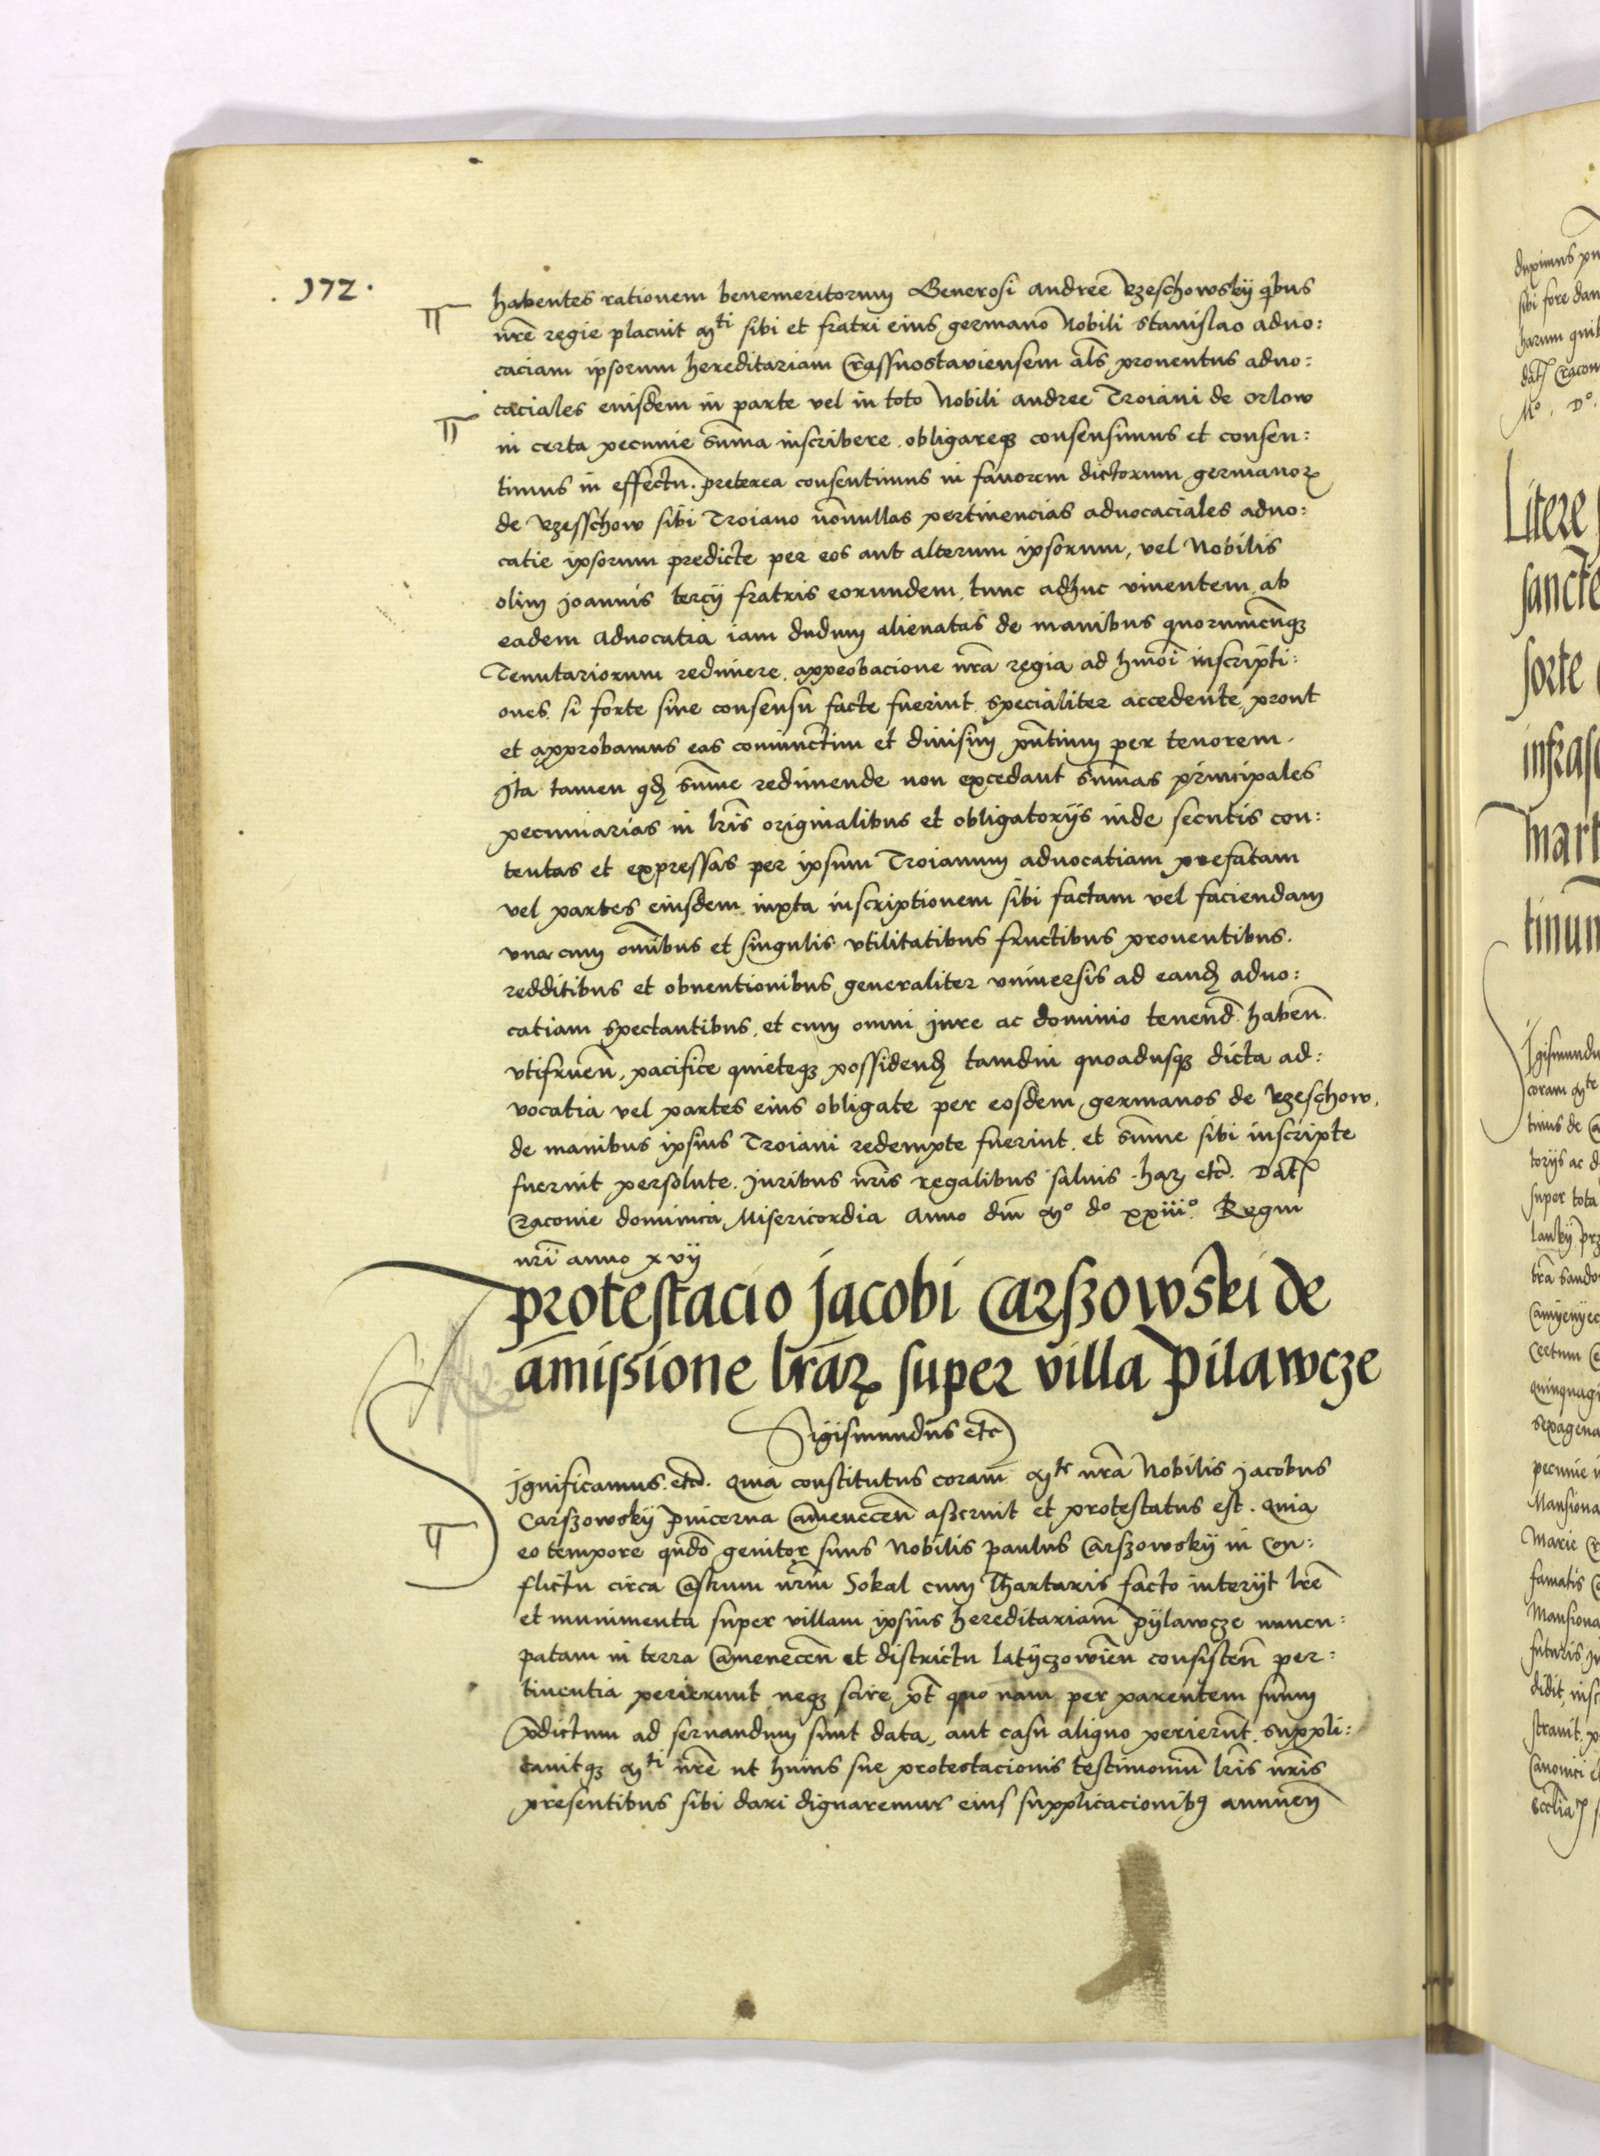 . 172 .
habentes rationem benemeritorum Generosi Andree Rzeschowskÿ qbus
nre regie placuit Mti sibi et fratri eius germano Nobili Stanislao aduo:
caciam ipsorum hereditariam Crassnostauiensem als prouentus aduo:
caciales eiusdem in parte vel in toto Nobili Andree Troiani de Orlow
in certa pecunie suma inscribere obligareqz consensimus et consen:
timus in effectu. preterea consentimus in fauorem dictorum germanorꝝ
de Rzesschow sibi Troiano nonnullas pertinencias aduocaciales aduo:
catie ipsorum predicte per eos aut alterum ipsorum, vel Nobilis
olim Joannis tercÿ fratris eorundem, tunc adhuc viuentem ab
eadem aduocatia iam dudum alienatas de manibus quorumcunqz
Tenutariorum redimere, approbacione nra regia ad hmoi inscripti:
ones si forte sine consensu facte fuerint specialiter accedente, prout
et approbamus eas coniunctim et diuisim pntium per tenorem.
Ita tamen qd sume redimende non excedant sumas principales
pecuniarias in lris originalibus et obligatorÿs inde secutis con:
tentas et expressas per ipsum Troianum aduocatiam prefatam
vel partes eiusdem iuxta inscriptionem sibi factam vel faciendam
vna cum omibus et singulis vtilitatibus fructibus prouentibus.
redditibus et obuentionibus generaliter vniuersis ad eand aduo:
catiam spectantibus, et cum omni iure ac dominio tenend. haben.
vtifruen, pacifice quieteqz possidend tamdiu quoadusqz dicta ad:
vocatia vel partes eius obligate per eosdem germanos de Rzeschow.
de manibus ipsius Troiani redempte fuerint. et sume sibi inscripte
fuerint persolute. Juribus nris regalibus saluis. harꝝ etc. Dat
Cracouie dominica Misericordia Anno dni Mo do xxiiio. Regni
nri anno xvÿ
protestacio Jacobi Carszowski de
amissione lrarꝝ super villa Pilawcze
Sigismundus etc
Significamus. etc. Quia constitutus coram Mte nra Nobilis Jacobus
Carszowskÿ Pincerna Camenecen asseruit et protestatus est. Quia
eo tempore qndo genitor suus Nobilis Paulus Carszowskÿ in Con:
flictu circa Castrum nrm Sokal cum Thartaris facto interÿt lre
et munimenta super villam ipsius hereditariam Pÿlawcze nuncu:
patam in terra Camenecen et districtu Latÿczowien consisten per:
tinentia perierunt neqz scire pt quo nam per parentem suum
pdictum ad seruandum sunt data, aut casu aliquo perierunt. suppli:
cauitqz Mti nre ut huius sue protestacionis testimonium lris nris
presentibus sibi dari dignaremur eius supplicacionibꝰ annuen